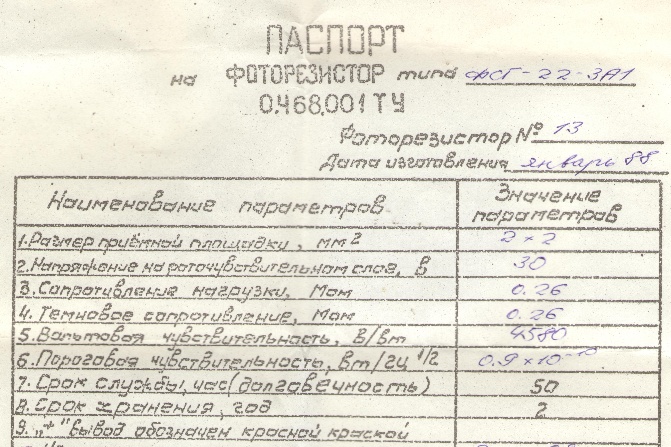 ПАСПОРТ
на ФОТОРЕЗИСТОР типа ФСГ-22-3А1
0.468.001 ТУ
Фоторезистор № 13
Дата изготовления январь 88
Наименование параметров Значение параметров
1. Размер приёмной площадки, мм2 2×2
2. Напряжение на фоточувствительном слое, В 30
3. Сопротивление нагрузки, Мом 0.26
4. Темновое сопротивление, Мом 0.26
5. Вольтовая чувствительность, В/вт 4580
6. Пороговая чувствительность, вт/гц 1/2 0.9×10-10
7. Срок службы, час (долговечность) 50
8. Срок хранения, год 2
9. „+" вывод обозначен красной краской